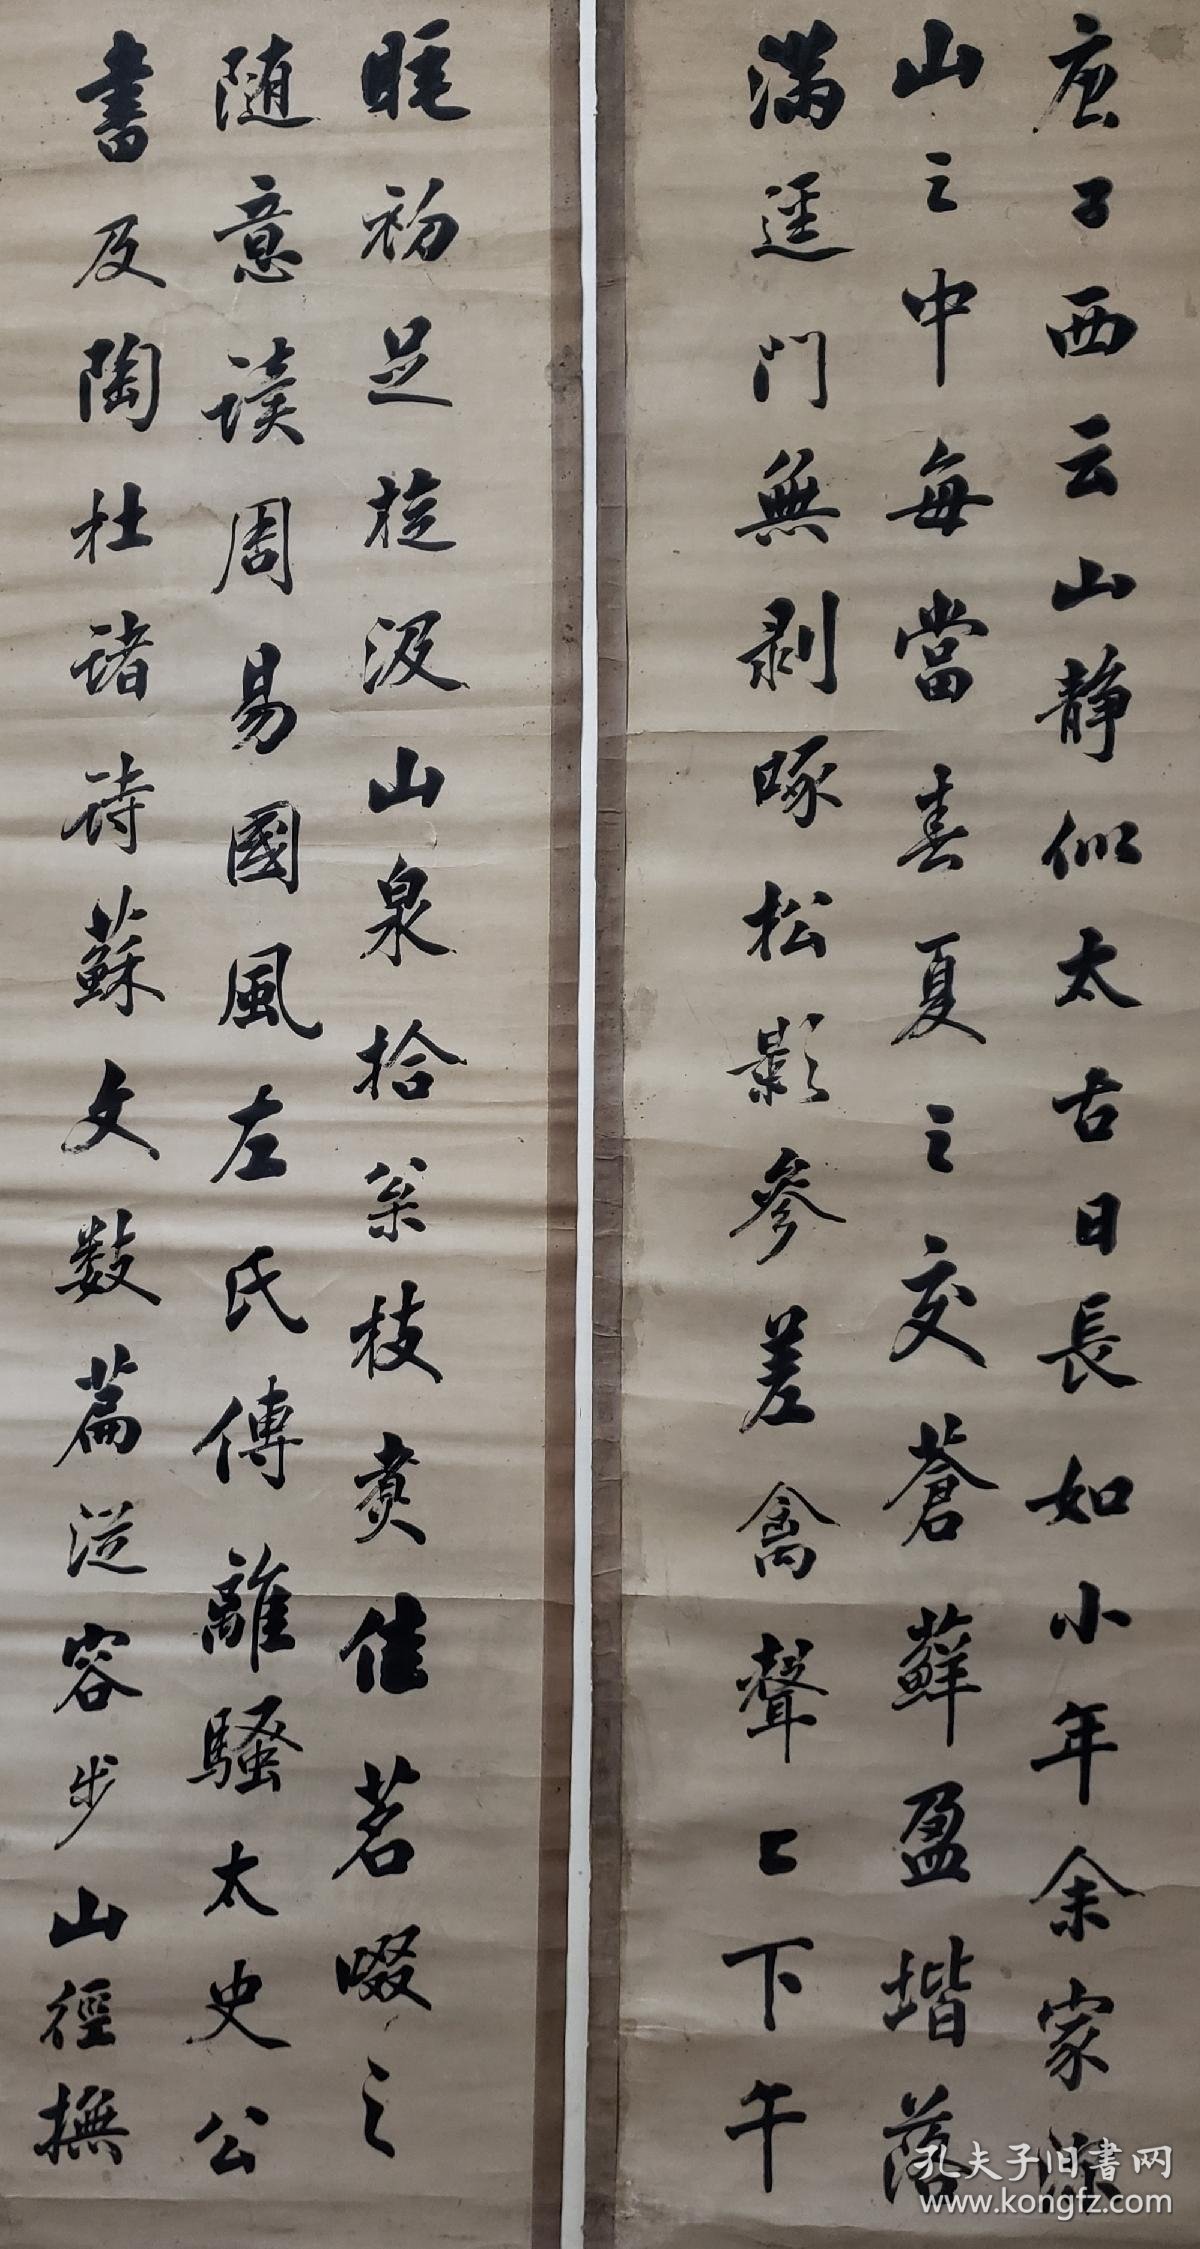 唐子西云山静似太古日長如小年余家深
山之中每當春夏之交蒼蘚盈堦落
滿逕門無剥啄松影參差禽聲上下午
睡初足旋汲山泉拾枲枝煑佳茗啜之
随意读周易國風左氏傳離騷太史公
書及陶杜诸诗蘇文数篇從容步山徑撫
孔夫子旧書网
www.kongfz.com